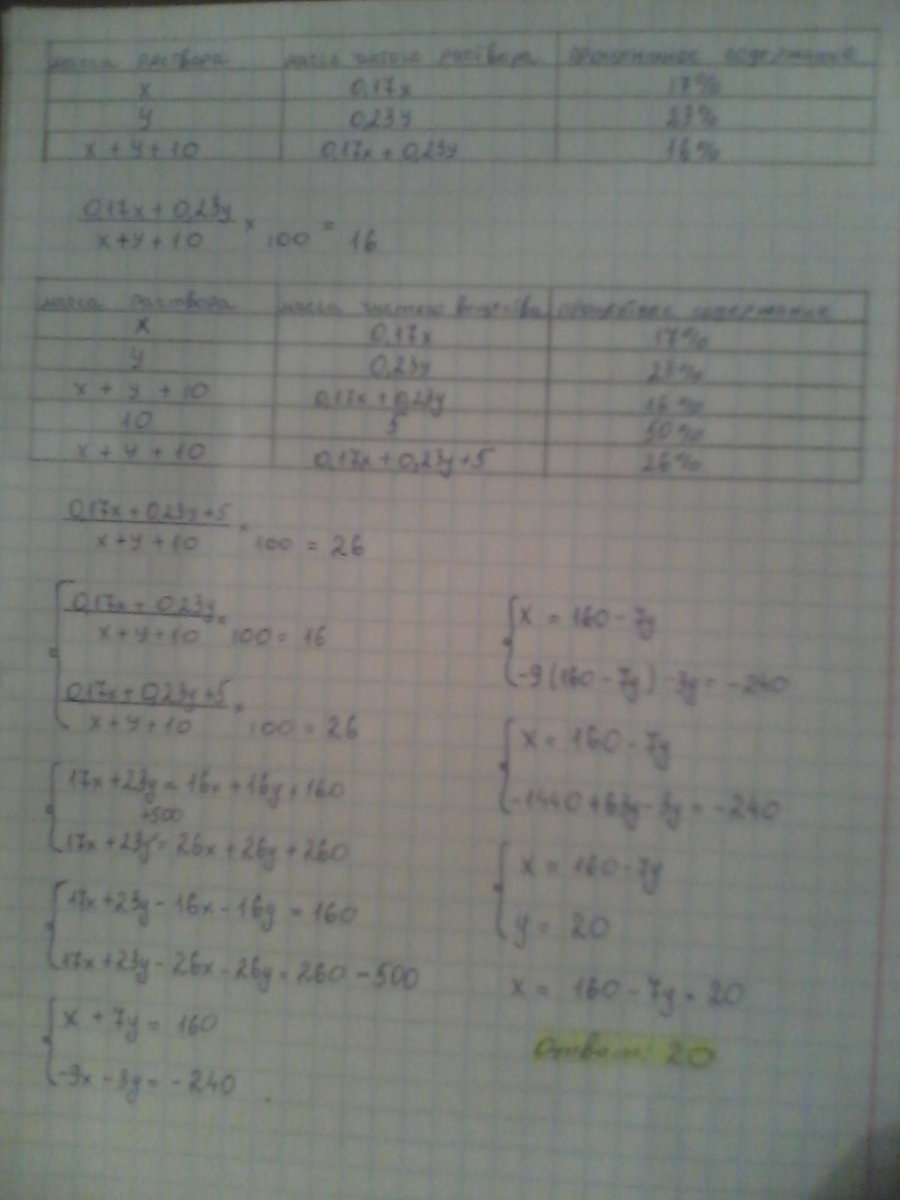 масса раствора масса чистого раствора процентное содержание
x 0,17x 17%
y 0,23y 23%
x + y + 10 0,17x + 0,23y 16%
0,17x + 0,23y / x + y + 10 × 100 = 16
масса раствора масса чистого вещества процентное содержание
x 0,17x 17%
y 0,23y 23%
x + y + 10 0,17x + 0,23y 16%
10 5 50%
x + y + 10 0,17x + 0,23y + 5 26%
0,17x + 0,23y + 5 / x + y + 10 × 100 = 26
0,17x + 0,23y / x + y + 10 × 100 = 16
0,17x + 0,23y + 5 / x + y + 10 × 100 = 26
17x + 23y = 16x + 16y + 160
+500
17x + 23y = 26x + 26y + 260
17x + 23y - 16x - 16y = 160
17x + 23y - 26x - 26y = 260 - 500
x + 7y = 160
-9x - 3y = -240
x = 160 - 7y
-9(160 - 7y) - 3y = -240
x = 160 - 7y
-1440 + 63y - 3y = -240
x = 160 - 7y
y = 20
x = 160 - 7y = 20
Ответ: 20